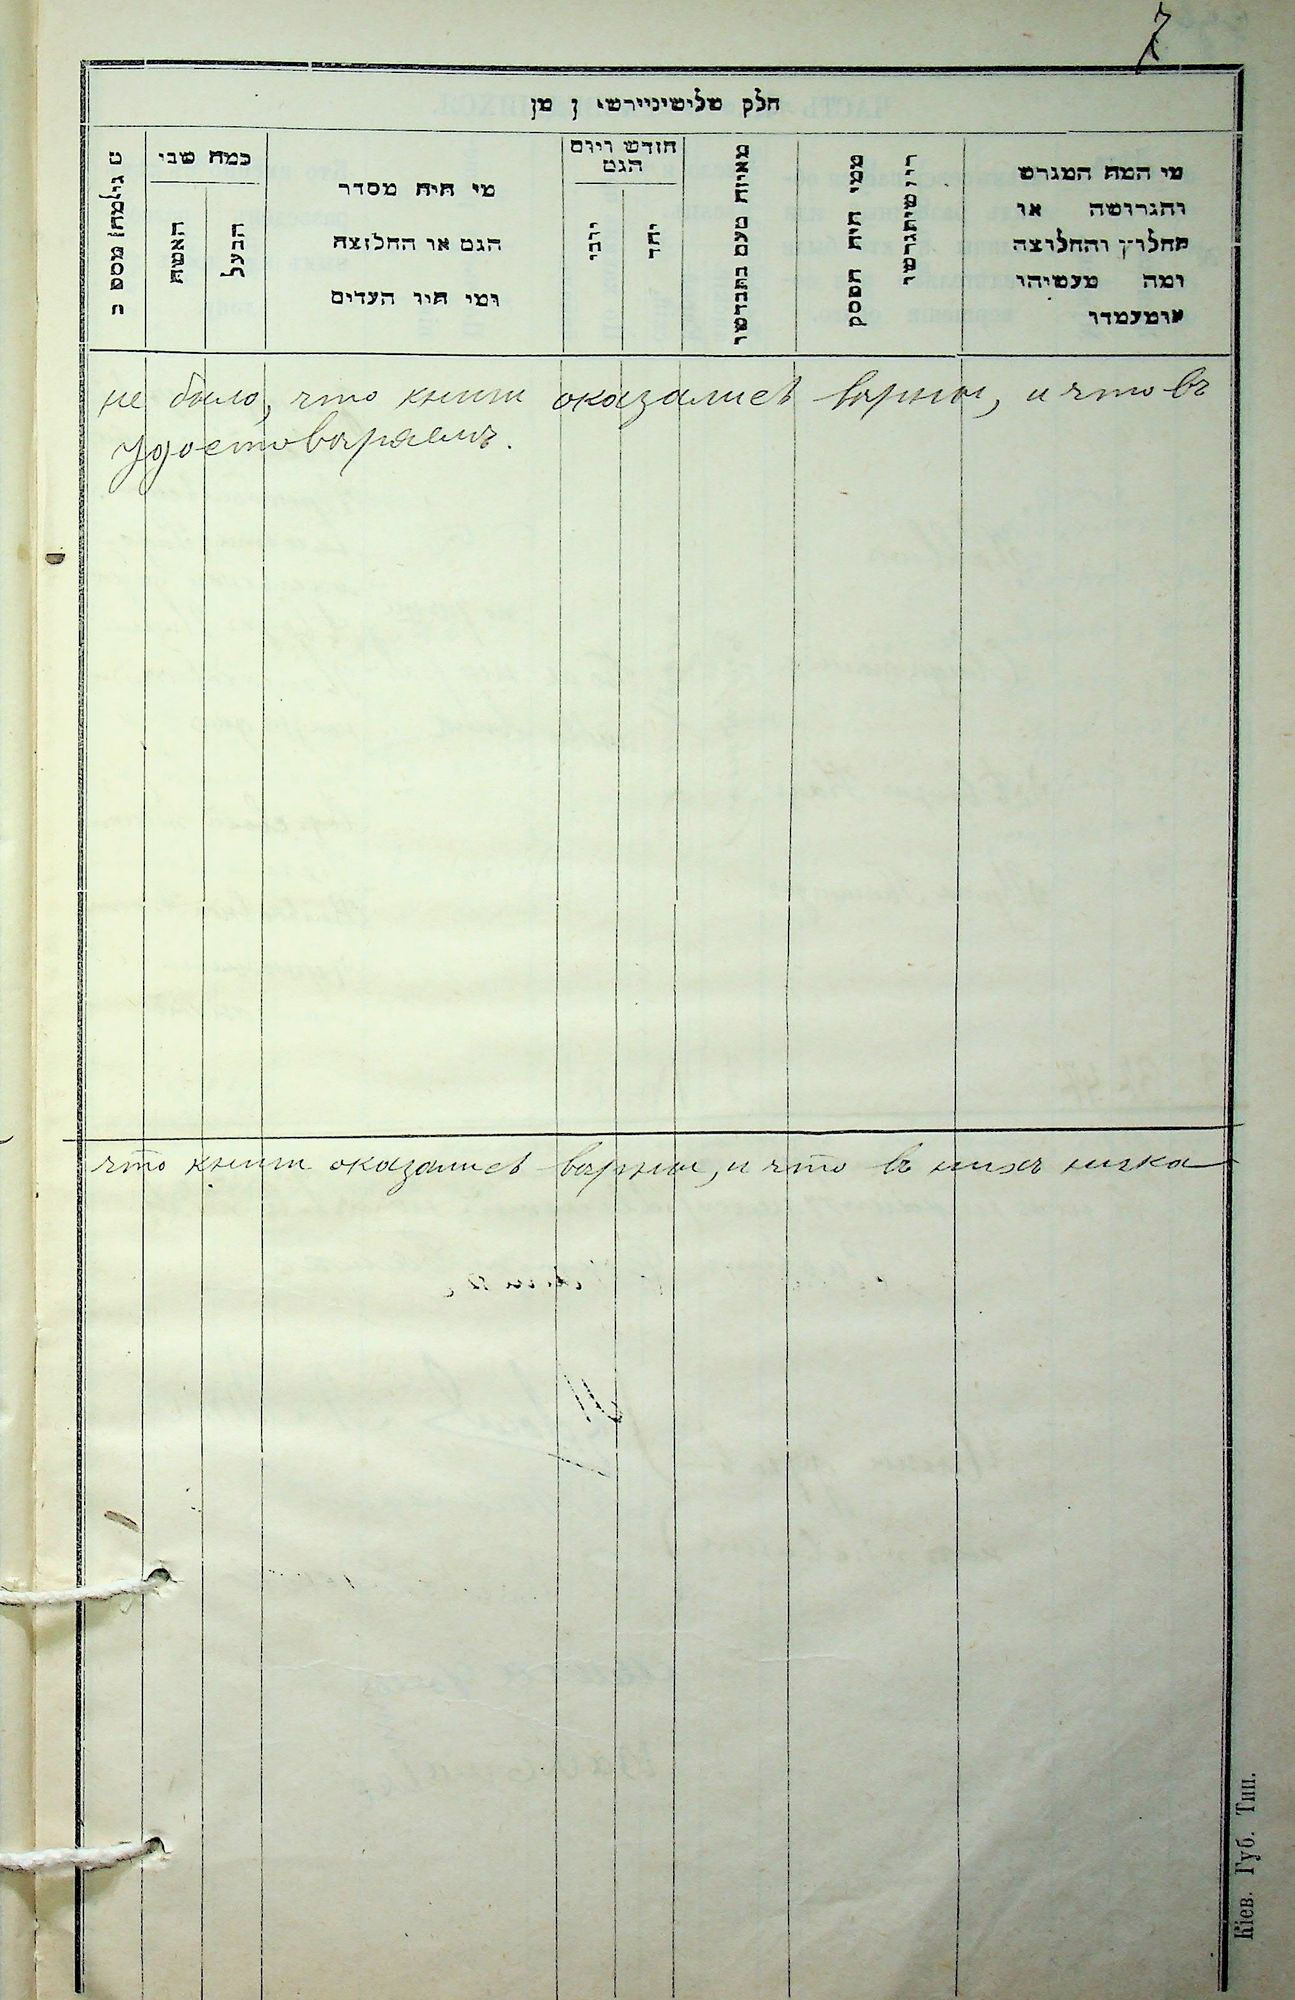 7
חלק שלישי מן
מי המה המגרש
והגרושה או
החלוץ והחלוצה
ומה מעשיהו
ומעמדו
ממי היה הפסק
חודש ויום
הגט
יהודי
מי היה מסדר
הגט או החליצה
ומי היו העדים
כמה שני
הבעל
האשה
не было, что книги оказались вѣрны, и что въ
удостовѣряемъ.
что книги оказались вѣрны, и что въ нихъ ника
Кіев. Губ. Тип.